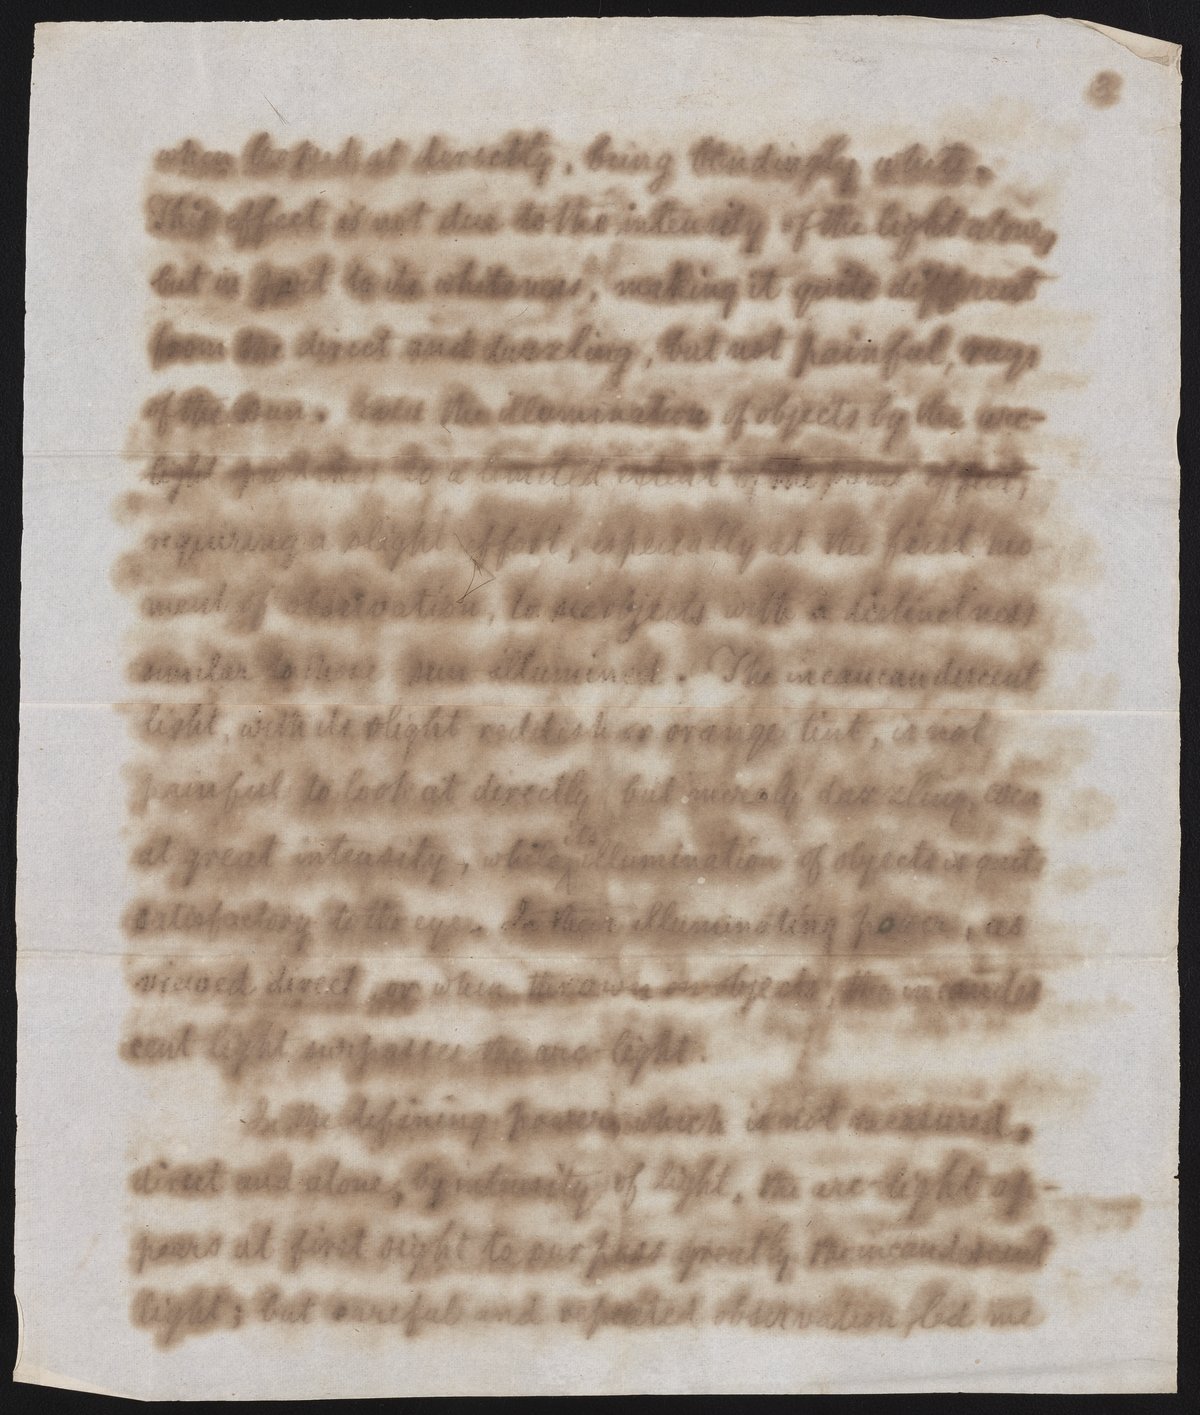 when looked at directly, being blindingly white.
This effect is not due to the intensity of the light alone,
but in part to its whiteness, making it quite different
from the direct and dazzling, but not painful, rays
of the sun. Even the illumination of objects by the arc-
light produces to a limited extent the same effect,
requiring a slight effort, especially at the first mo
ment of observation, to see objects with a distinctness
similar to those sun illumined. The incancandescent
light, with its slight reddish or orange tint, is not
painful to look at directly but merely dazzling, even
at great intensity, while its illumination of objects is quite
satisfactory to the eye. In their illuminating power, as
viewed direct, or when thrown on objects, the incandes
cent light surpasses the arc-light.
In the defining power, which is not measured,
direct and alone, by intensity of light, the arc-light ap-
pears at first sight to surpass greatly the incandescent
light; but careful and repeated observation led me